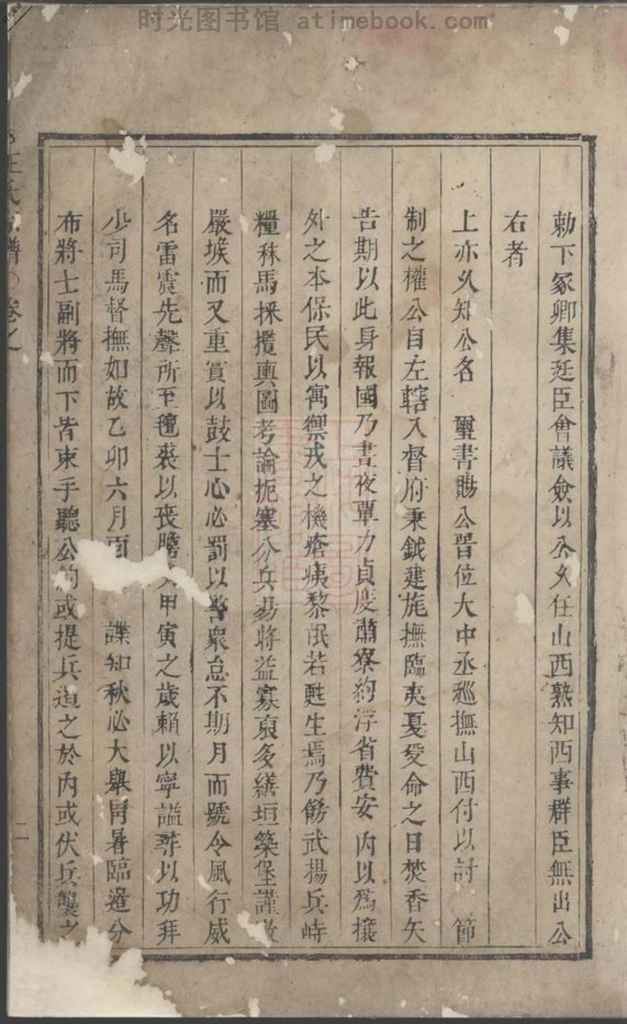 时光图书馆 atimebook.com
勅下冢卿集廷臣會議僉以公久任山西熟知西事群臣無出公
右者
上亦久知公名 璽書賜公晋位大中丞廵撫山西付以討 節
制之權公自左轄入督府秉鉞建旄撫臨夷夏受命之日焚香矢
告期以此身報國乃晝夜單力貞度肅寮約浮省費安內以爲攘
外之本保民以寓禦戎之機瘡痍黎氓若甦生焉乃飭武揚兵峙
糧秣馬採攬輿圖考論扼塞分兵易將益寡裒多繕垣築堡謹
嚴堠而又重賞以鼓士心必罰以警衆怠不期月而號令風行威
名雷震先聲所至氊裘以喪膽 甲寅之歲賴以寧謐尋以功拜
少司馬督撫如故乙卯六月 諜知秋必大舉冒暑臨邉分
布將士副將而下皆束手聽公約或提兵 之於內或伏兵 之
王氏 譜 卷之
二